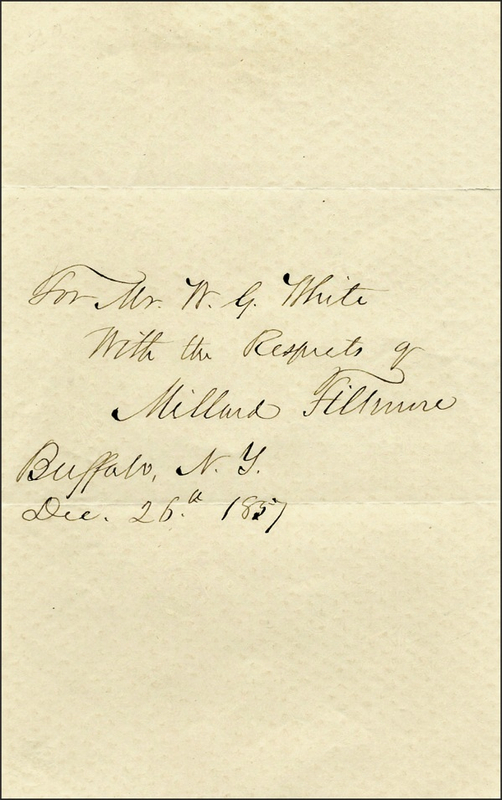 For Mr. W. G. White
With the Respects of
Millard Fillmore
Buffalo, N. Y.
Dec. 26.th 1857